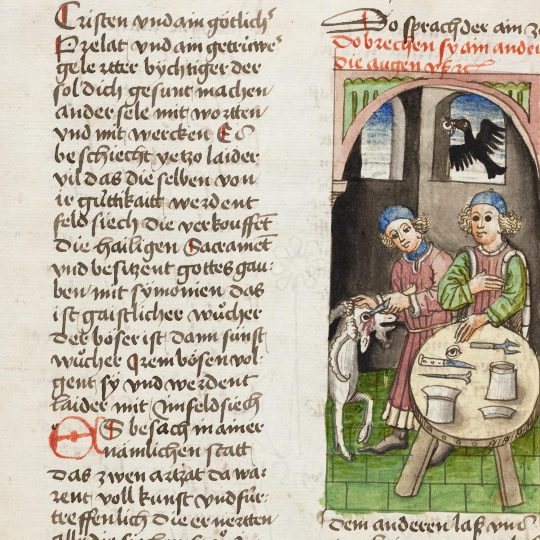 Cristen vnd ain götlich
Prelat vnd ain getrüwe
gelertter bychtiger der
sol dich gesunt machen
an der sele mit wortten
vnd mit wercken Es
beschiecht yetzo laider
vil das die selben von
ir gúttikaitt werdent
feldsiech die verkouffet
die hailigen Sacramet
vnd besitzent gottes gau-
ben mit symonien das
ist gaistlicher wůcher
der böser ist dann sunst
wůcher Irem bösen vol
gent sy vnd werdent
laider mit Jnfeldsiech
ES besach in ainer
námlichen statt
das zwen artzat da wa-
rent voll kunst vnd für-
treffenlich die ernertten
Do sprach der ain z
do brechen sy ain ander
die augen
dem anderen laß vns